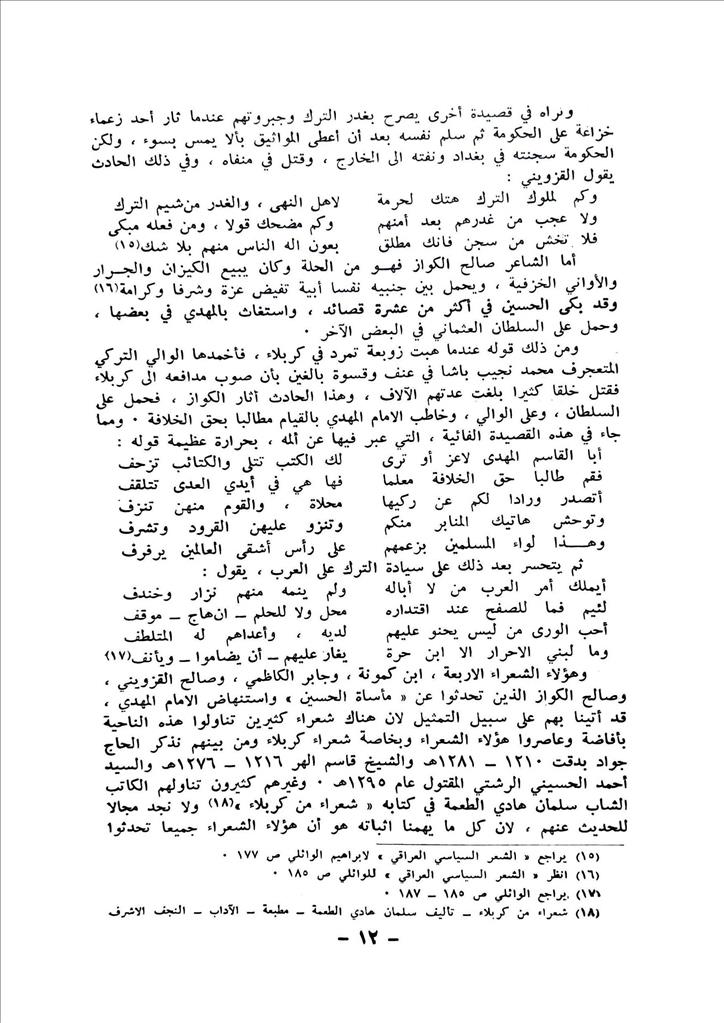 ونراه في قصيدة أخرى يصرح بغدر الترك وجبروتهم عندما ثار أحد زعماء
خزاعة على الحكومة ثم سلم نفسه بعد أن أعطى المواثيق بألا يمس بسوء ، ولكن
الحكومة سجنته في بغداد ونفته الى الخارج ، وقتل في منفاه ، وفي ذلك الحادث
يقول القزويني :
وكم لملوك الترك هتك لحرمة لاهل النهى ، والغدر من شيم الترك
ولا عجب من غدرهم بعد أمنهم وكم مضحك قولا ، ومن فعله مبكى
فلا تخش من سجن فانك مطلق بعون اله الناس منهم بلا شك(١٥)
أما الشاعر صالح الكواز فهـو من الحلة وكان يبيع الكيزان والجـرار
والأواني الخزفية ، ويحمل بين جنبيه نفسا أبية تفيض عزة وشرفا وكرامة(١٦)
وقد بكى الحسين في أكثر من عشرة قصائد ، واستغاث بالمهدي في بعضها ،
وحمل على السلطان العثماني في البعض الآخر ٠
ومن ذلك قوله عندما هبت زوبعة تمرد في كربلاء ، فأخمدها الوالي التركي
المتعجرف محمد نجيب باشا في عنف وقسوة بالغين بأن صوب مدافعه الى كربلاء
فقتل خلقا كثيرا بلغت عدتهم الآلاف ، وهذا الحادث أثار الكواز ، فحمل على
السلطان ، وعلى الوالي ، وخاطب الامام المهدي بالقيام مطالبا بحق الخلافة ٠ ومما
جاء في هذه القصيدة الفائية ، التي عبر فيها عن ألمه ، بحرارة عظيمة قوله :
أبا القاسم المهدى لاعز أو ترى لك الكتب تتلى والكتائب تزحف
فقم طالبا حق الخلافة معلما فها هي في أيدي العدى تتلقف
أتصدر ورادا لكم عن ركيها محلاة ، والقوم منهن تنزف
وتوحش هاتيك المنابر منكم وتنزو عليهن القرود وتشرف
وهـــذا لواء المسلمين بزعمهم على رأس أشقى العالمين يرفرف
ثم يتحسر بعد ذلك على سيادة الترك على العرب ، يقول :
أيملك أمر العرب من لا أباله ولم ينمه منهم نزار وخندف
لئيم فما للصفح عند اقتداره محل ولا للحلم ــ ان هاج ــ موقف
أحب الورى من ليس يحنو عليهم لديه ، وأعداهم له المتلطف
وما لبني الاحرار الا ابن حرة يغار عليهم ــ أن يضاموا ــ ويأنف(١٧)
وهؤلاء الشعراء الاربعة ، ابن كمونة ، وجابر الكاظمي ، وصالح القزويني ،
وصالح الكواز الذين تحدثوا عن « مأساة الحسين » واستنهاض الامام المهدي ،
قد أتينا بهم على سبيل التمثيل لان هناك شعراء كثيرين تناولوا هذه الناحية
بأفاضة وعاصروا هؤلاء الشعراء وبخاصة شعراء كربلاء ومن بينهم نذكر الحاج
جواد بدقت ١٢١٠ ــ ١٢٨١هـ والشيخ قاسم الهر ١٢١٦ ــ ١٢٧٦هـ والسيد
أحمد الحسيني الرشتي المقتول عام ١٢٩٥هـ ٠ وغيرهم كثيرون تناولهم الكاتب
الشاب سلمان هادي الطعمة في كتابه « شعراء من كربلاء »(١٨) ولا نجد مجالا
للحديث عنهم ، لان كل ما يهمنا اثباته هو أن هؤلاء الشعراء جميعا تحدثوا
(١٥) يراجع « الشعر السياسي العراقي » لابراهيم الوائلي ص ١٧٧ ٠
(١٦) انظر « الشعر السياسي العراقي » للوائلي ص ١٨٥ ٠
(١٧) يراجع الوائلي ص ١٨٥ ــ ١٨٧ ٠
(١٨) شعراء من كربلاء ــ تأليف سلمان هادي الطعمة ــ مطبعة ــ الآداب ــ النجف الاشرف
ــ ١٢ ــ